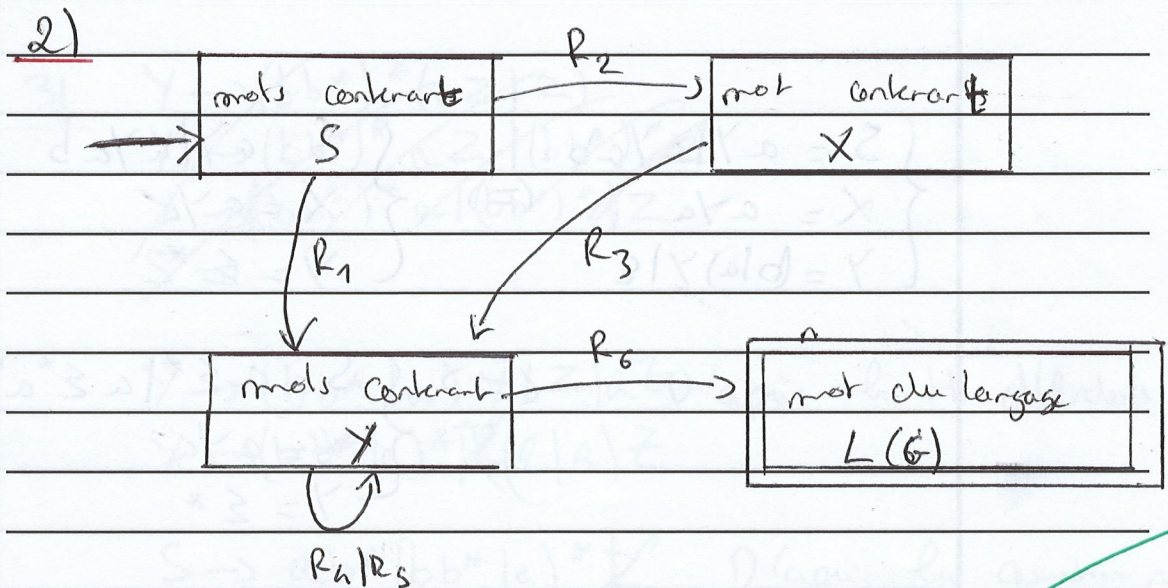 2)
R2
mots contenant
S
mot contenant
X
R1
R3
mots contenant
Y
R6
mot du langage
L(G)
R4/R5